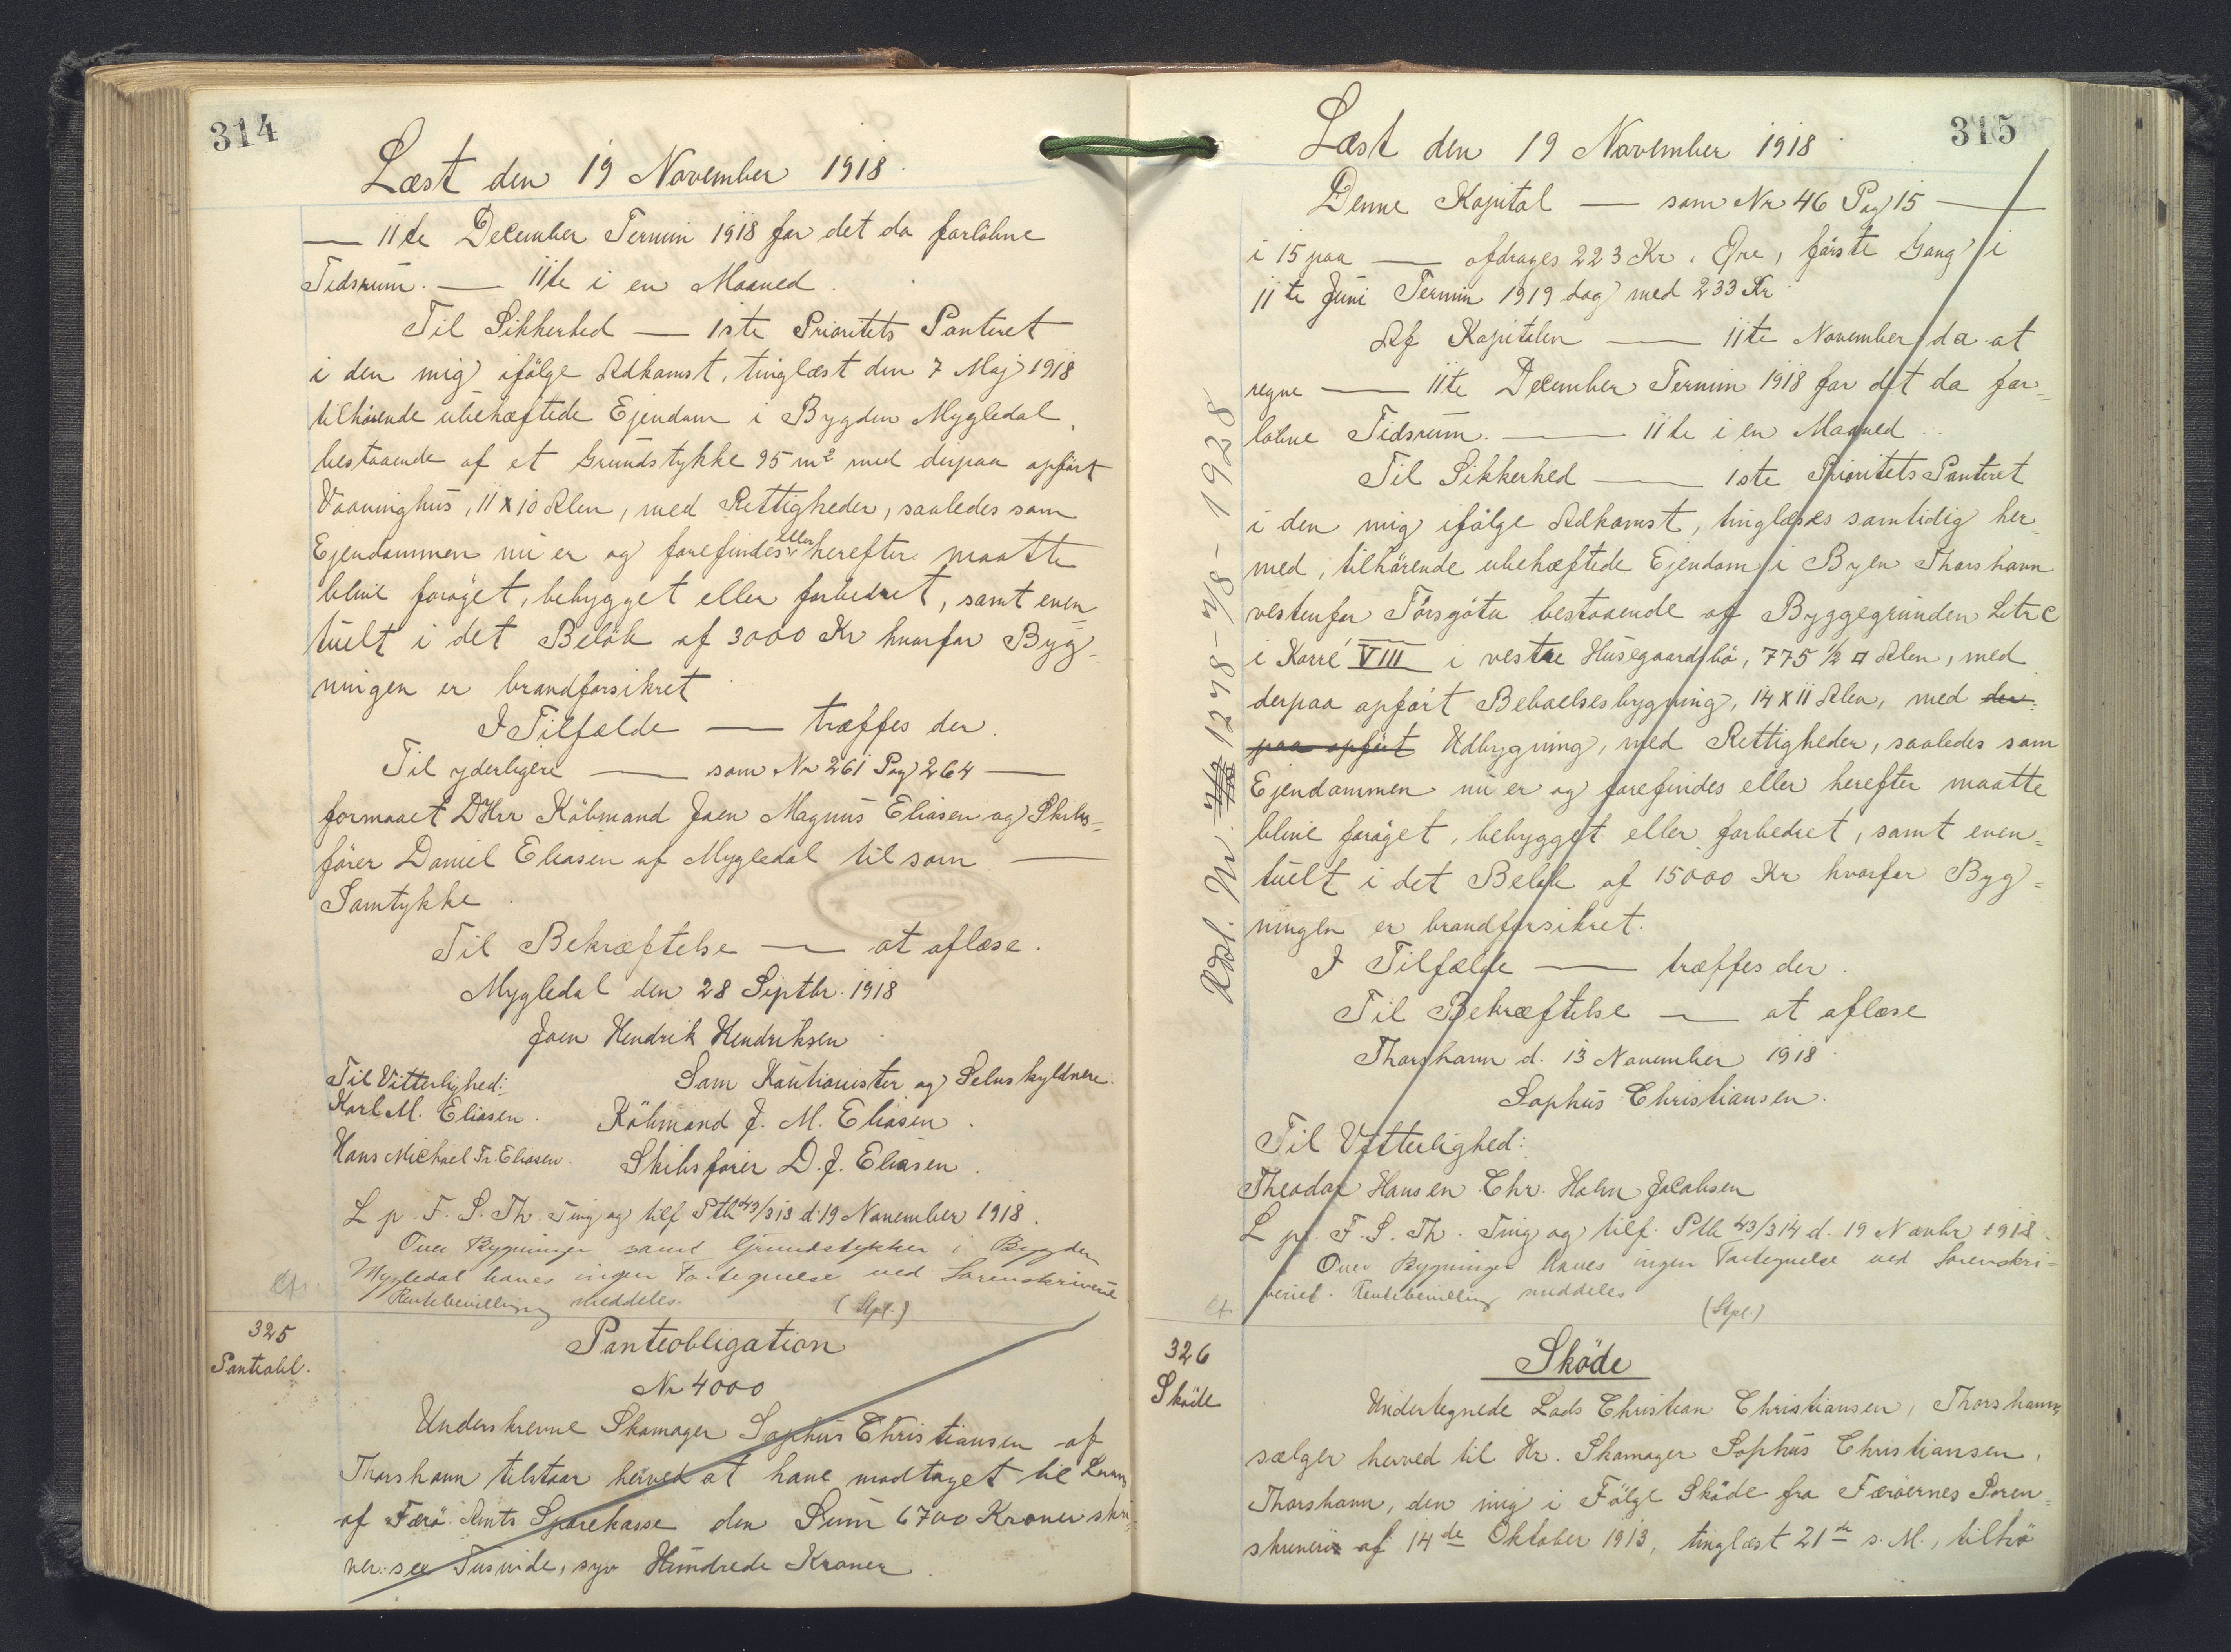 314
Læst den 19 November 1918.
— 11te December Termin 1918 for det da forløbne
Tidsrum. — 11te i en Maaned.
Til Sikkerhed — 1ste Prioritets Panteret
i den mig ifölge Adkomst, tinglæst den 7 Maj 1918
tilhörende ubehæftede Ejendom i Bygden Mygledal,
bestaaende af et Grundstykke 95 m² med derpaa opfört
Vaaninghus, 11 x 10 Alen, med Rettigheder, saaledes som
Ejendommen nu er og forefindes eller herefter maatte
blive foröget, bebygget eller forbedret, samt even=
tuelt i det Belöb af 3000 Kr hvorfor Byg=
ningen er brandforsikret
I Tilfælde — træffes der.
Til yderligere — som Nr 261 Pag 264 —
formaaet DHrr Köbmand Joen Magnus Eliasen og Skibs=
förer Daniel Eliasen af Mygledal til som —
Samtykke
Til Bekræftelse — at aflæse.
Mygledal den 28 Septbr. 1918
Joen Hendrik Hendriksen
Til Vitterlighed: Som Kautionister og Selvskyldnere:
Karl M. Eliasen. Köbmand J. M. Eliasen.
Hans Michael Fr. Eliasen. Skibsförer D. J. Eliasen.
L p. F. S. Th. Ting og tilf Ptb 43/313 d. 19 November 1918.
Over Bygninger samt Grundstykker i Bygden
Mygledal haves ingen Fortegnelse ved Sorenskriveriet
Rentebevilling meddeles. (Stpl.)
Cfr.
325
Panteobl.
Panteobligation
Nr 4000
Underskrevne Skomager Sophus Christiansen af
Thorshavn tilstaar herved at have modtaget til Laans
af Færö Amts Sparekasse den Sum 6700 Kroner skri=
ver: sex Tusinde, syv Hundrede Kroner.
315
Læst den 19 November 1918.
Denne Kapital — som Nr 46 Pag 15 —
i 15 paa — afdrages 223 Kr. Øre, förste Gang i
11te Juni Termin 1919 dog med 233 Kr
Af Kapitalen — 11te November da at
regne — 11te December Termin 1918 for det da for=
løbne Tidsrum. — 11te i en Maaned.
Til Sikkerhed — 1ste Prioritets Panteret
i den mig ifölge Adkomst, tinglæses samtidig her
med, tilhörende ubehæftede Ejendom i Byen Thorshavn
vestenfor Törsgöta bestaaende af Byggegrunden Litr C
i Karré VIII i vestre Husegaardsbö, 775 ½ □ Alen, med
derpaa opfört Beboelsesbygning, 14 x 11 Alen, med der=
paa opfört Udbygning, med Rettigheder, saaledes som
Ejendommen nu er og forefindes eller herefter maatte
blive foröget, bebygget eller forbedret, samt even=
tuelt i det Belöb af 15000 Kr hvorfor Byg=
ningen er brandforsikret.
I Tilfælde — træffes der.
Til Bekræftelse — at aflæse
Thorshavn d. 13 November 1918.
Sophus Christiansen.
Til Vitterlighed:
Theodor Hansen Chr. Holm Jacobsen
L p. F. S. Th. Ting og tilf. Ptb 43/314 d. 19 Novbr 1918.
Over Bygninger haves ingen Fortegnelse ved Sorenskri=
veriet. Rentebevilling meddeles (Stpl.)
Cfr
Adsl. Nr. 1278 - 7/8 - 1928
326
Sköde
Sköde
Undertegnede Lads Christian Christiansen, Thorshavn,
sælger herved til Hr. Skomager Sophus Christiansen,
Thorshavn, den mig i Fölge Sköde fra Færöernes Soren=
skriveri af 14de Oktober 1913, tinglæst 21de s. M., tilhö